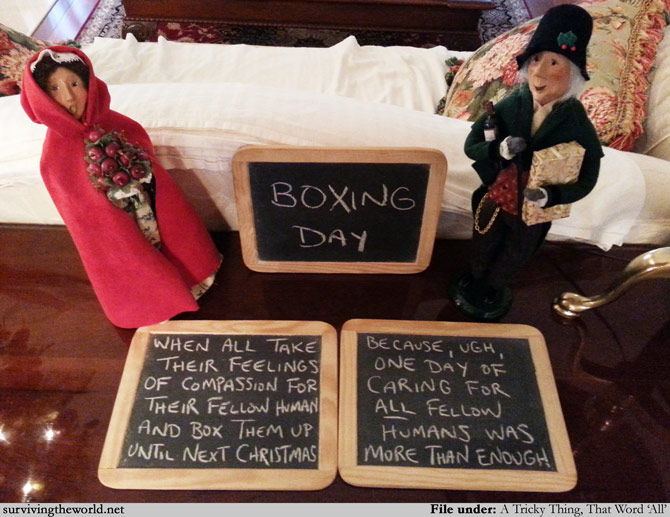 BOXING
DAY
WHEN ALL TAKE
THEIR FEELINGS
OF COMPASSION FOR
THEIR FELLOW HUMAN
AND BOX THEM UP
UNTIL NEXT CHRISTMAS
BECAUSE, UGH,
ONE DAY OF
CARING FOR
ALL FELLOW
HUMANS WAS
MORE THAN ENOUGH
survivingtheworld.net
File under: A Tricky Thing, That Word 'All'